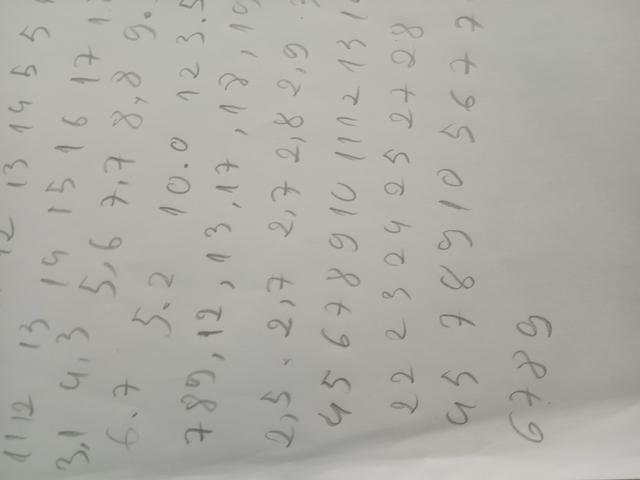 12 13 14 5 5
1112 13 14 15 16 17
3,1 4,3 5,6 7,7 8,8 9.
6.7 5.2 10.0 12 3.5
789,12,13,17,18,19
2,5. 2,7 2,7 2,8 2,9
45 678910 1112 13
22 23 24 25 27 28
45 7 8 9 10 5 6 7 7
6789